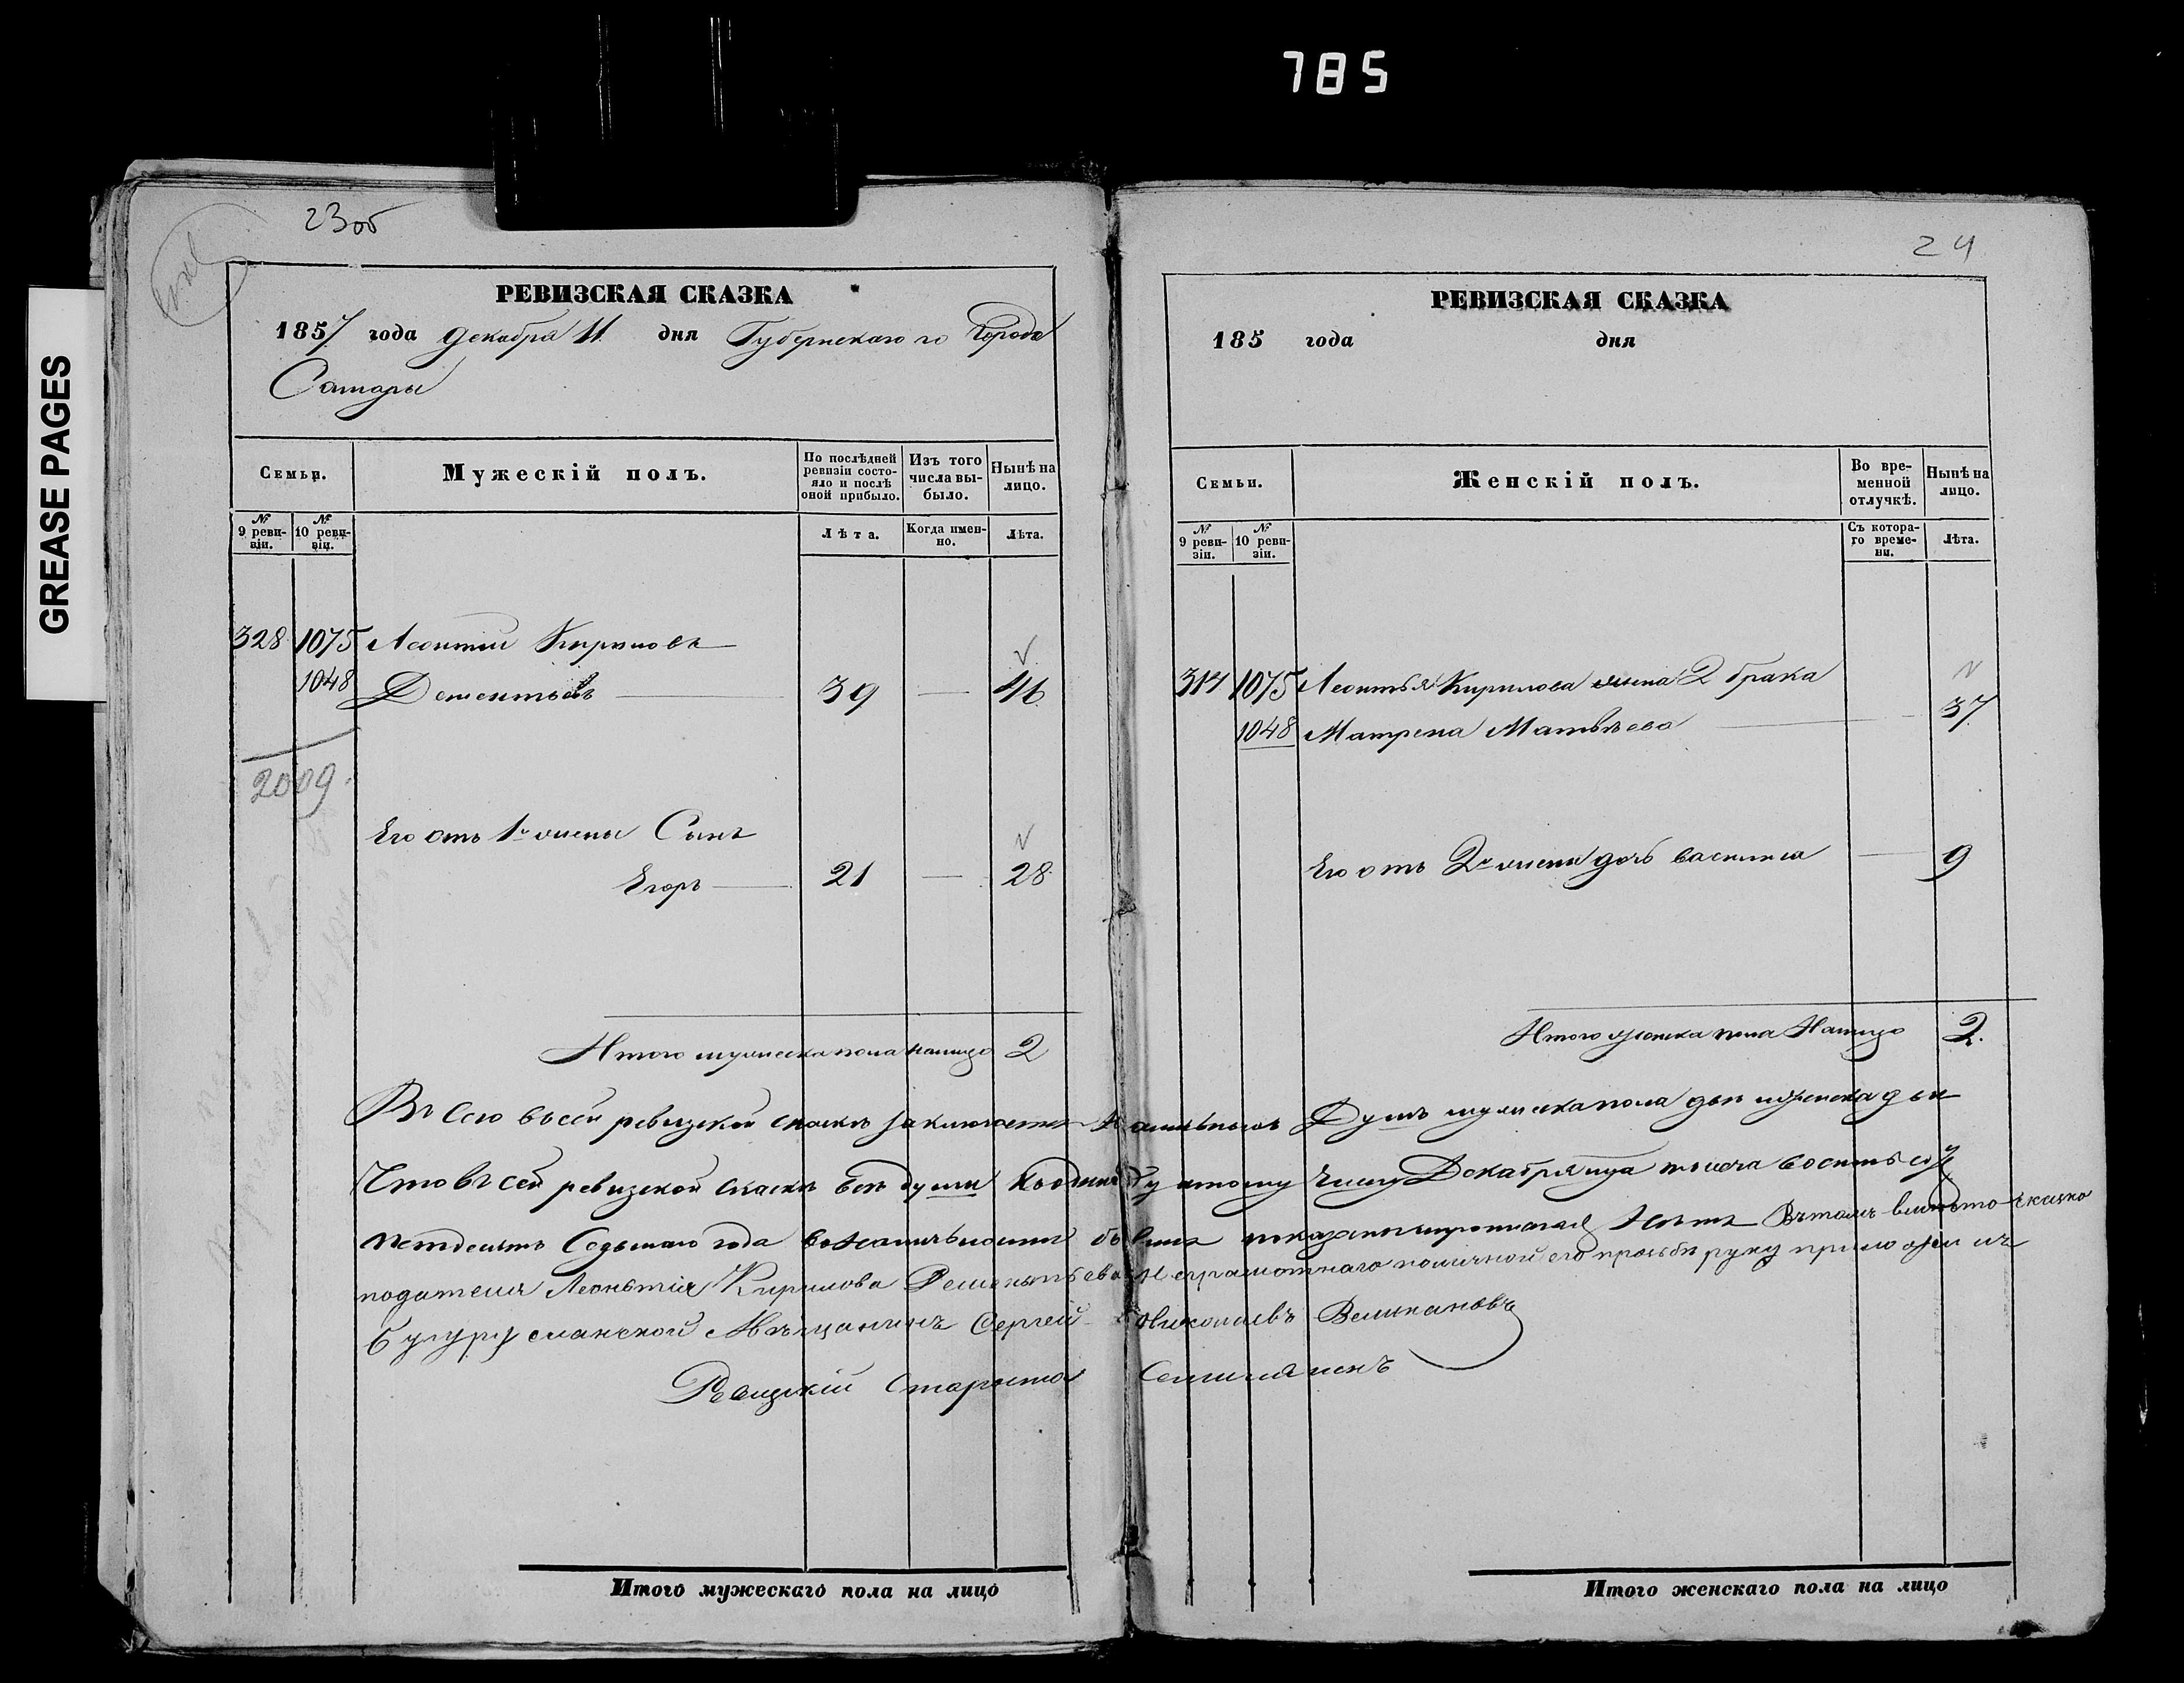 785
GREASE PAGES
23об
РЕВИЗСКАЯ СКАЗКА
1857 года декабря 11 дня Губернскаго Города
Самары
Семьи.
Мужескій полъ.
По послѣдней ревизіи состояло и послѣ оной прибыло.
Изъ того числа выбыло.
Нынѣ на лицо.
№ 9 ревизіи.
№ 10 ревизіи.
Лѣта.
Когда именно.
Лѣта.
328 1075 Леонтий Кириловъ
1048 Дементьевъ 39 — 46
2009.
Его отъ 1й жены Сынъ
Егоръ 21 — 28
Итого мужеска пола налицо 2
24
РЕВИЗСКАЯ СКАЗКА
185 года дня
Семьи.
Женскій полъ.
Во временной отлучкѣ.
Нынѣ на лицо.
№ 9 ревизіи.
№ 10 ревизіи.
Съ котораго времени.
Лѣта.
Лѣта.
314 1075 Леонтья Кирилова жена 2 брака
1048 Матрена Матвѣева 37
Его отъ 2й жены дочь василиса — 9
Итого женска пола Налицо 2.
въ сей ревизской сказкѣ заключается Наличныхъ Душъ мужеска пола двѣ и женска двѣ
Что въ сей ревизской сказкѣ всѣ души Декабря тысяча восемьсотъ
петдесятъ Седьмаго года показаны Нетъ Въ томъ
подателя Леонътия Кирилова Дементьева Неграмотнаго поличной его прозьбѣ руку приложилъ
Бугурусланской Мѣщанинъ Сергей Николаевъ Великановъ
Ревизкій Староста
Итого мужескаго пола на лицо
Итого женскаго пола на лицо